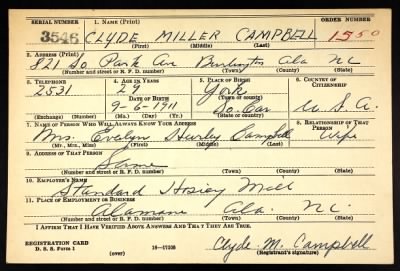 SERIAL NUMBER 1. NAME (Print) ORDER NUMBER
3546 CLYDE MILLER CAMPBELL 1550
(First) (Middle) (Last)
2. ADDRESS (Print)
821 So Park Ave Burlington Ala NC
(Number and street or R. F. D. number) (Town) (County) (State)
3. TELEPHONE 4. AGE IN YEARS 5. PLACE OF BIRTH 6. COUNTRY OF CITIZENSHIP
2531 29 York
DATE OF BIRTH (Town or county)
9-6-1911 So. Car U.S.A.
(Exchange) (Number) (Mo.) (Day) (Yr.) (State or country)
7. NAME OF PERSON WHO WILL ALWAYS KNOW YOUR ADDRESS 8. RELATIONSHIP OF THAT PERSON
Mrs. Evelyn Hurley Campbell Wife
(Mr., Mrs., Miss) (First) (Middle) (Last)
9. ADDRESS OF THAT PERSON
Same
(Number and street or R. F. D. number) (Town) (County) (State)
10. EMPLOYER'S NAME
Standard Hosiery Mill
11. PLACE OF EMPLOYMENT OR BUSINESS
Alamance Ala. NC.
(Number and street or R. F. D. number) (Town) (County) (State)
I AFFIRM THAT I HAVE VERIFIED ABOVE ANSWERS AND THAT THEY ARE TRUE.
REGISTRATION CARD
D. S. S. Form 1 (over) 16—17105 Clyde M. Campbell
(Registrant's signature)